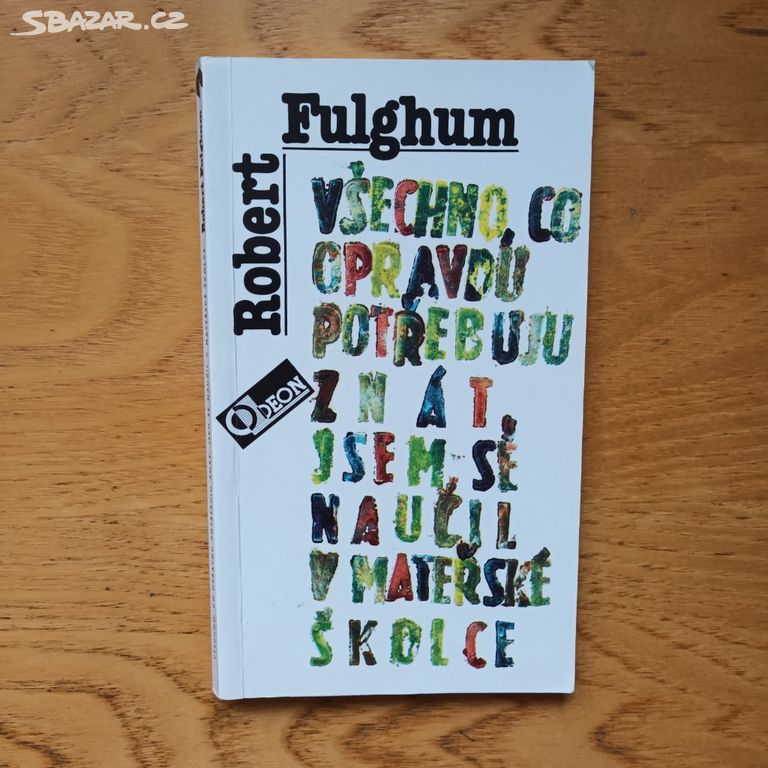 SBAZAR.CZ
Robert
Fulghum
VŠECHNO, CO
OPRAVDU
POTŘEBUJU
ZNÁT,
JSEM SE
NAUČIL
V MATEŘSKÉ
ŠKOLCE
ODEON
Robert Fulghum